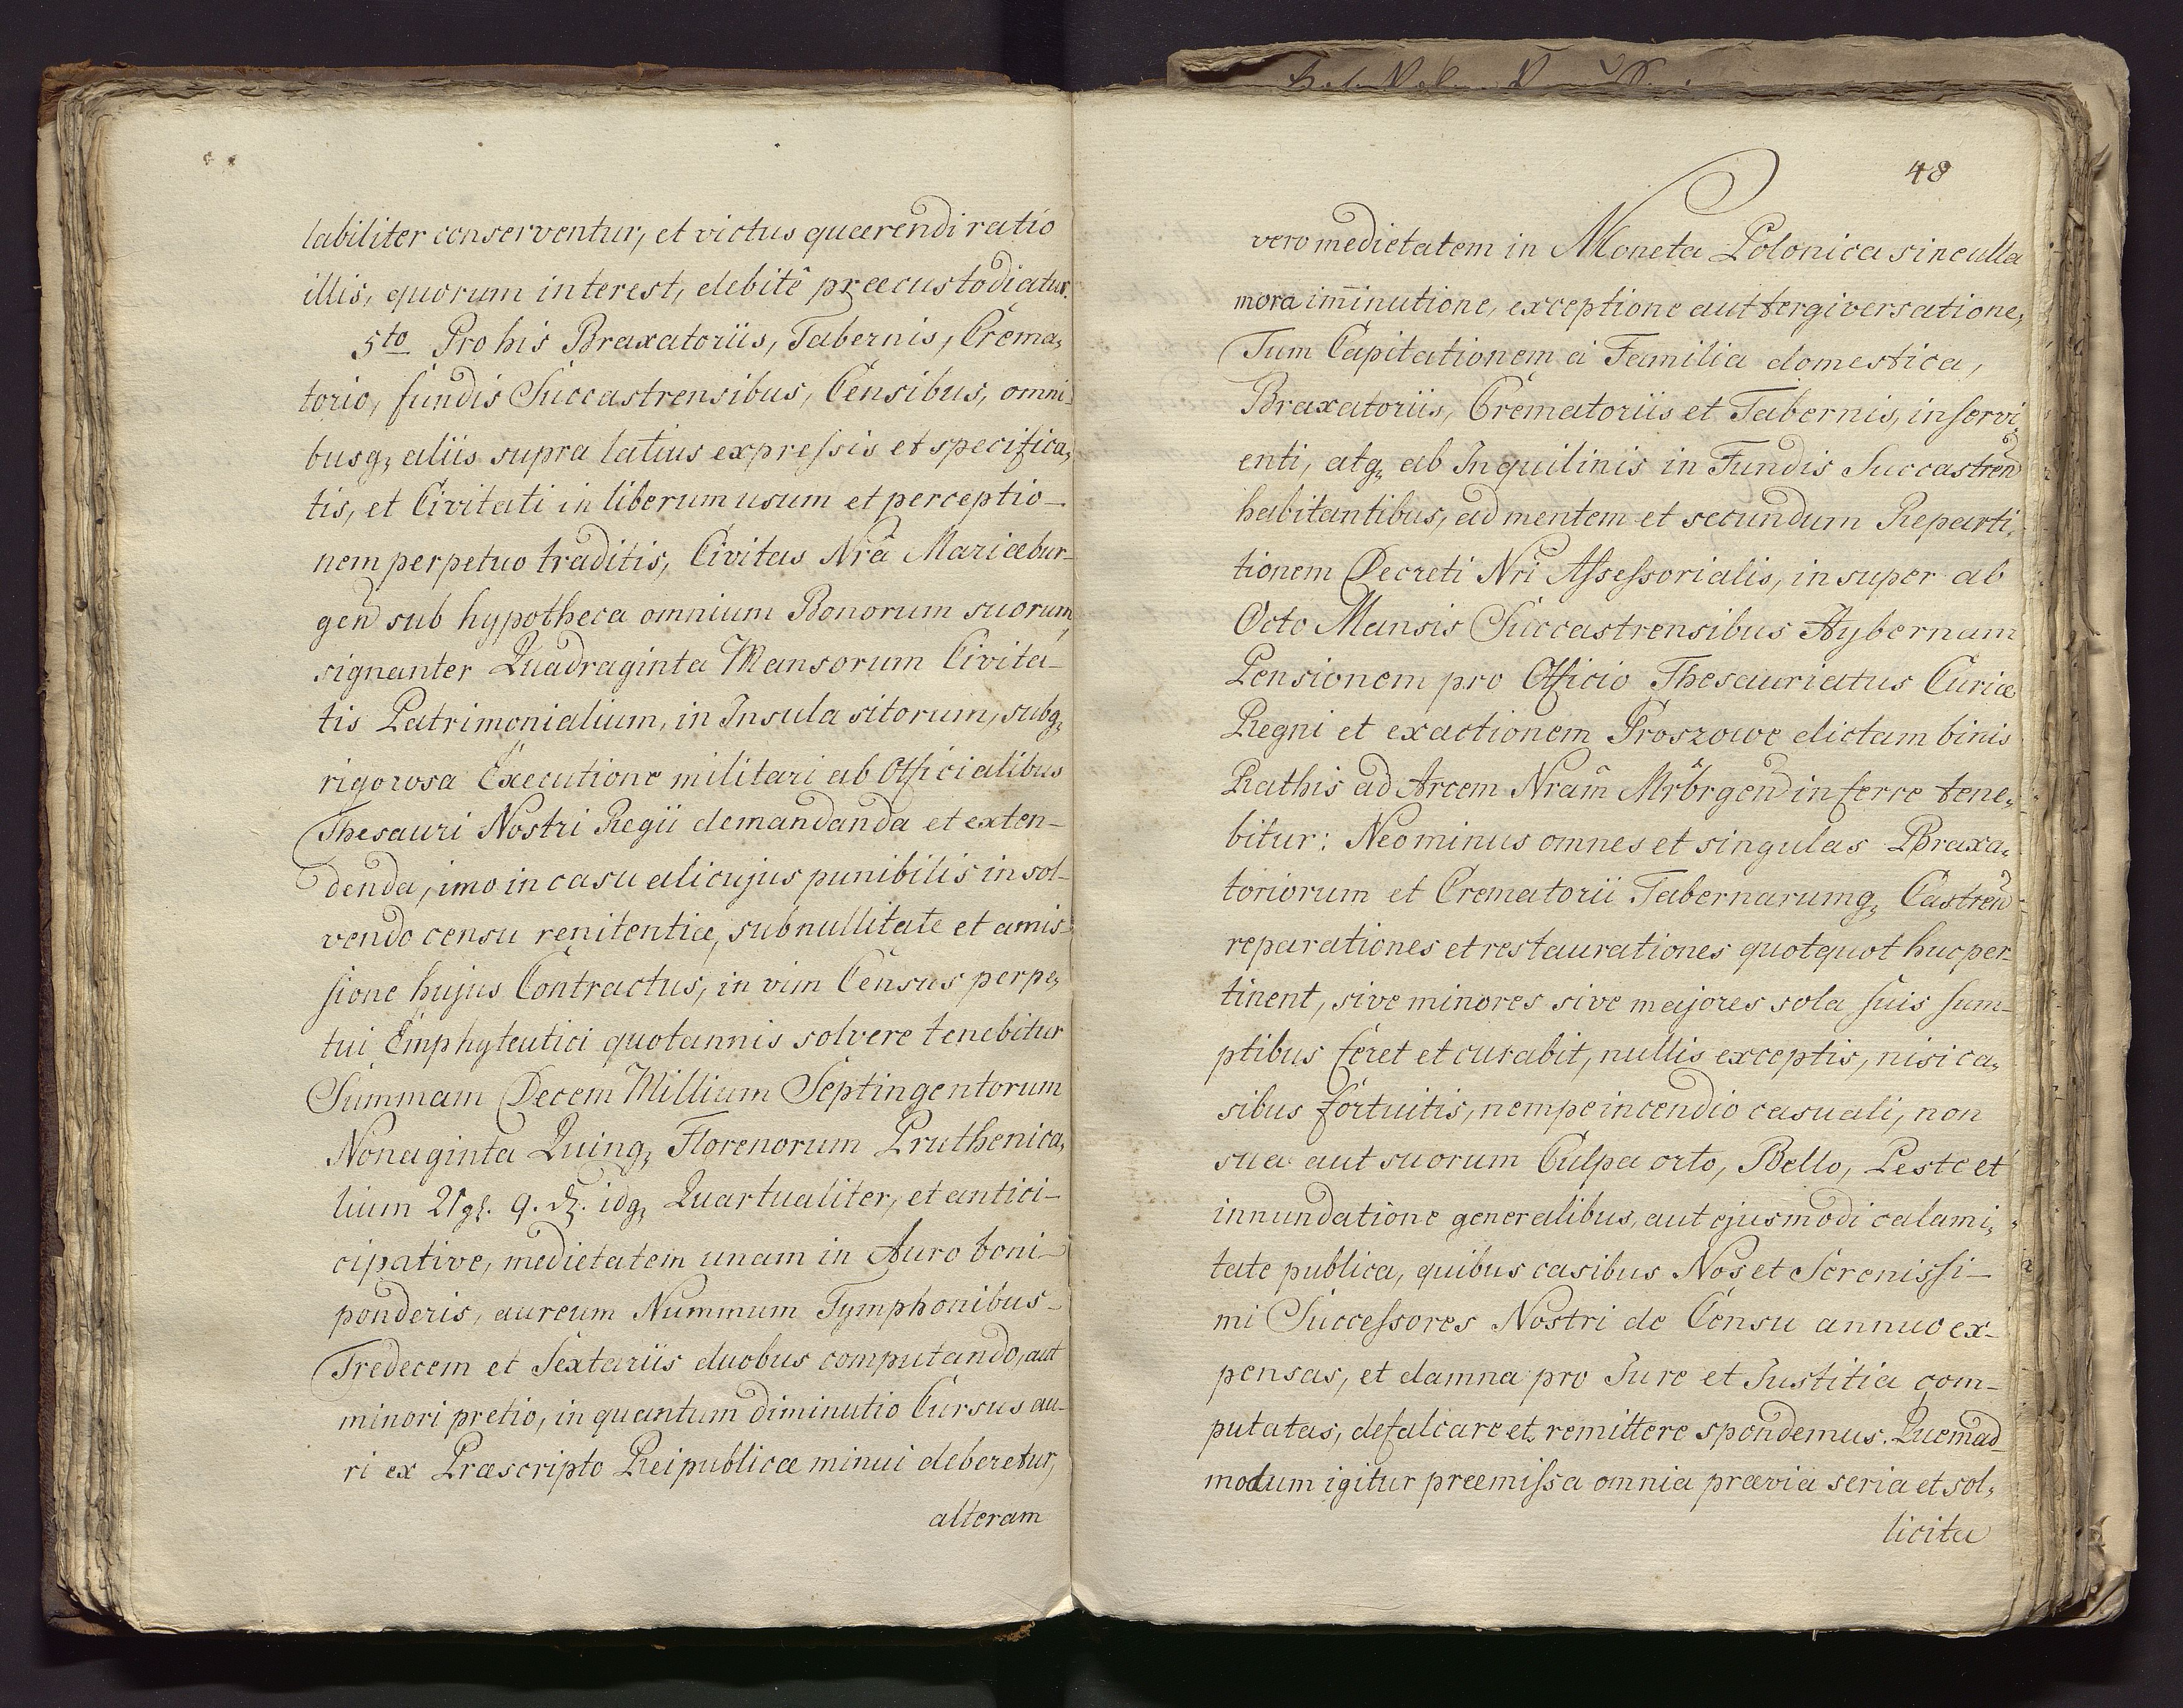 labiliter conserventur, et victus quærendi ratio
illis, quorum interest, debitê præcustodiatur.
5to Pro his Braxatoriis, Tabernis, Crema„
torio, fundis Succastrensibus, Censibus, omni„
busq„ aliis supra latius expreſsis et specifica„
tis, et Civitati in liberum usum et perceptio-
nem perpetuo traditis, Civitas Nrâ Mariæbur-
gen̄ sub hypotheca omnium Bonorum suorum
signanter Quadraginta Mansorum Civita-
tis Patrimonialium, in Insula sitorum, subq„
rigorosa Executione militari ab Officialibus
Thesauri Nostri Regii demandanda et exten-
denda, imo in casu alicujus punibilis in sol-
vendo censu renitentiæ, sub nullitate et amis-
ſione hujus Contractus, in vim Census perpe„
tui Emphyteutici quotannis solvere tenebitur
Summam Decem Millium Septingentorum
Nonaginta Quinq„ Florenorum Pruthenica„
lium 21 gł. 9. ₰. idq„ Quartualiter, et antici-
cipative, medietatem unam in Auro boni-
ponderis, aureum Nummum Tymphonibus-
Tredecem et Sextariis duobus computando, aut
minori pretio, in quantum diminutio Cursus au-
ri ex Præscripto Reipublicæ minui deberetur,
alteram
48
vero medietatem in Moneta Polonica sine ulla
mora im̄inutione, exceptione aut tergiversatione,
Tum Capitationem a Familia domestica,
Braxatoriis, Crematoriis et Tabernis, inſervi„
enti, atq„ ab Inquilinis in Fundis Succastren̄
habitantibus, ad mentem et secundum Reparti„
tionem Decreti Nri Aſseſsorialis, insuper ab
Octo Mansis Succastrensibus Hybernam
Pensionem pro Officio Thesauriatus Curiæ
Regni et exactionem Proszowe dictam binis
Rathis ad Arcem Nram̂ Mrbrgen̄ inferre tene„
bitur: Neominus omnes et singulas Braxa„
toriorum et Crematorii Tabernarumq„ Castren̄
reparationes et restaurationes quotquot huc per-
tinent, sive minores sive majores sola ſuis ſum-
ptibus feret et curabit, nullis exceptis, nisi ca„
sibus fortuitis, nempe incendio casuali, non
sua aut suorum Culpa orto, Bello, Peste et
innundatione generalibus, aut ejusmodi calami„
tate publica, quibus casibus Nos et Sereniſsi-
mi Succeſsores Nostri de Censu annuo ex-
pensas, et damna pro Jure et Justitia com-
putatas, defalcare et remittere spondemus. Quemad-
modum igitur præmiſsa omnia prævia seria et sol„
licita